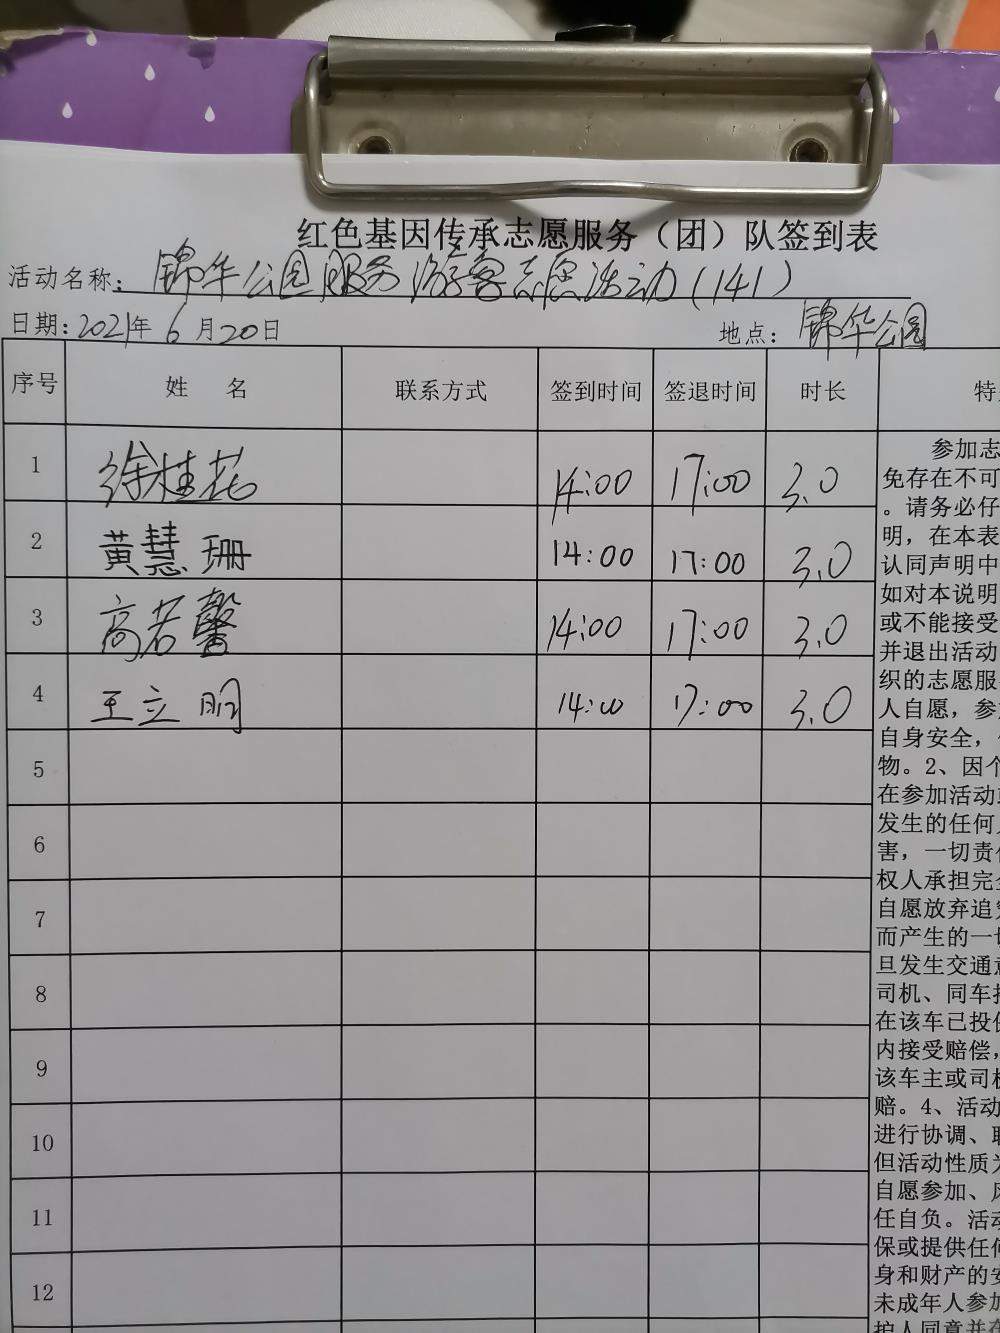 红色基因传承志愿服务（团）队签到表
活动名称：锦华公园服务游客志愿活动(141)
日期：2021年6月20日 地点：锦华公园
序号 姓 名 联系方式 签到时间 签退时间 时长 特
1 徐桂花 14:00 17:00 3.0
2 黄慧珊 14:00 17:00 3.0
3 高若馨 14:00 17:00 3.0
4 王立明 14:00 17:00 3.0
5
6
7
8
9
10
11
12
参加志
免存在不可
。请务必仔
明，在本表
认同声明中
如对本说明
或不能接受
并退出活动
织的志愿服
人自愿，参
自身安全，
物。2、因个
在参加活动
发生的任何
害，一切责
权人承担完
自愿放弃追
而产生的一
旦发生交通
司机、同车
在该车已投
内接受赔偿，
该车主或司
赔。4、活动
进行协调、
但活动性质
自愿参加、
任自负。活
保或提供任
身和财产的
未成年人参
护人同意并